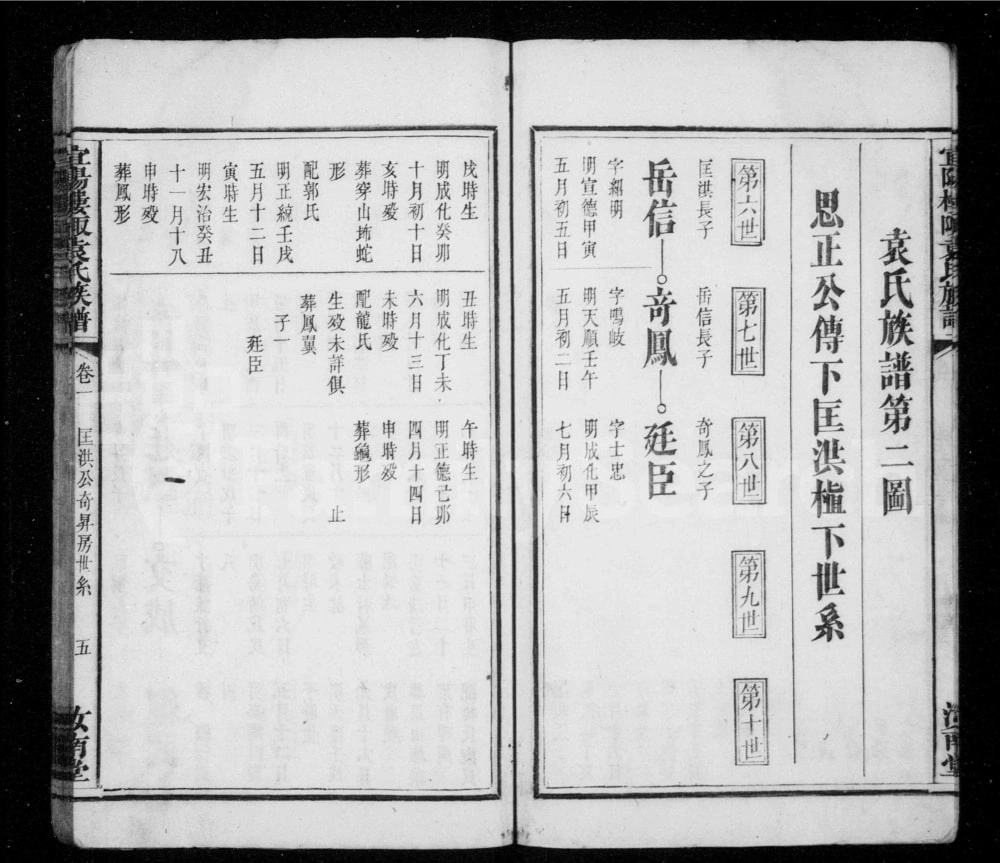 袁氏族譜第二圖
思正公傳下匡洪植下世系
第六世
第七世
第八世
第九世
第十世
匡洪長子
岳信長子
奇鳳之子
岳信—。奇鳳—。廷臣
字紹明
字鳴岐
字士忠
明宣德甲寅
明天順壬午
明成化甲辰
五月初五日
五月初二日
七月初六日
戌時生
丑時生
午時生
明成化癸卯
明成化丁未
明正德己卯
十月初十日
六月十三日
四月十四日
亥時歿
未時歿
申時歿
葬穿山坳蛇
配龍氏
葬龜形
形
生歿未詳俱
止
配郭氏
葬鳳翼
明正統壬戌
子一
五月十二日
廷臣
寅時生
明宏治癸丑
十一月十八
申時歿
葬鳳形
袁氏族譜
卷一
匡洪公奇昇房世系
五
汝南堂